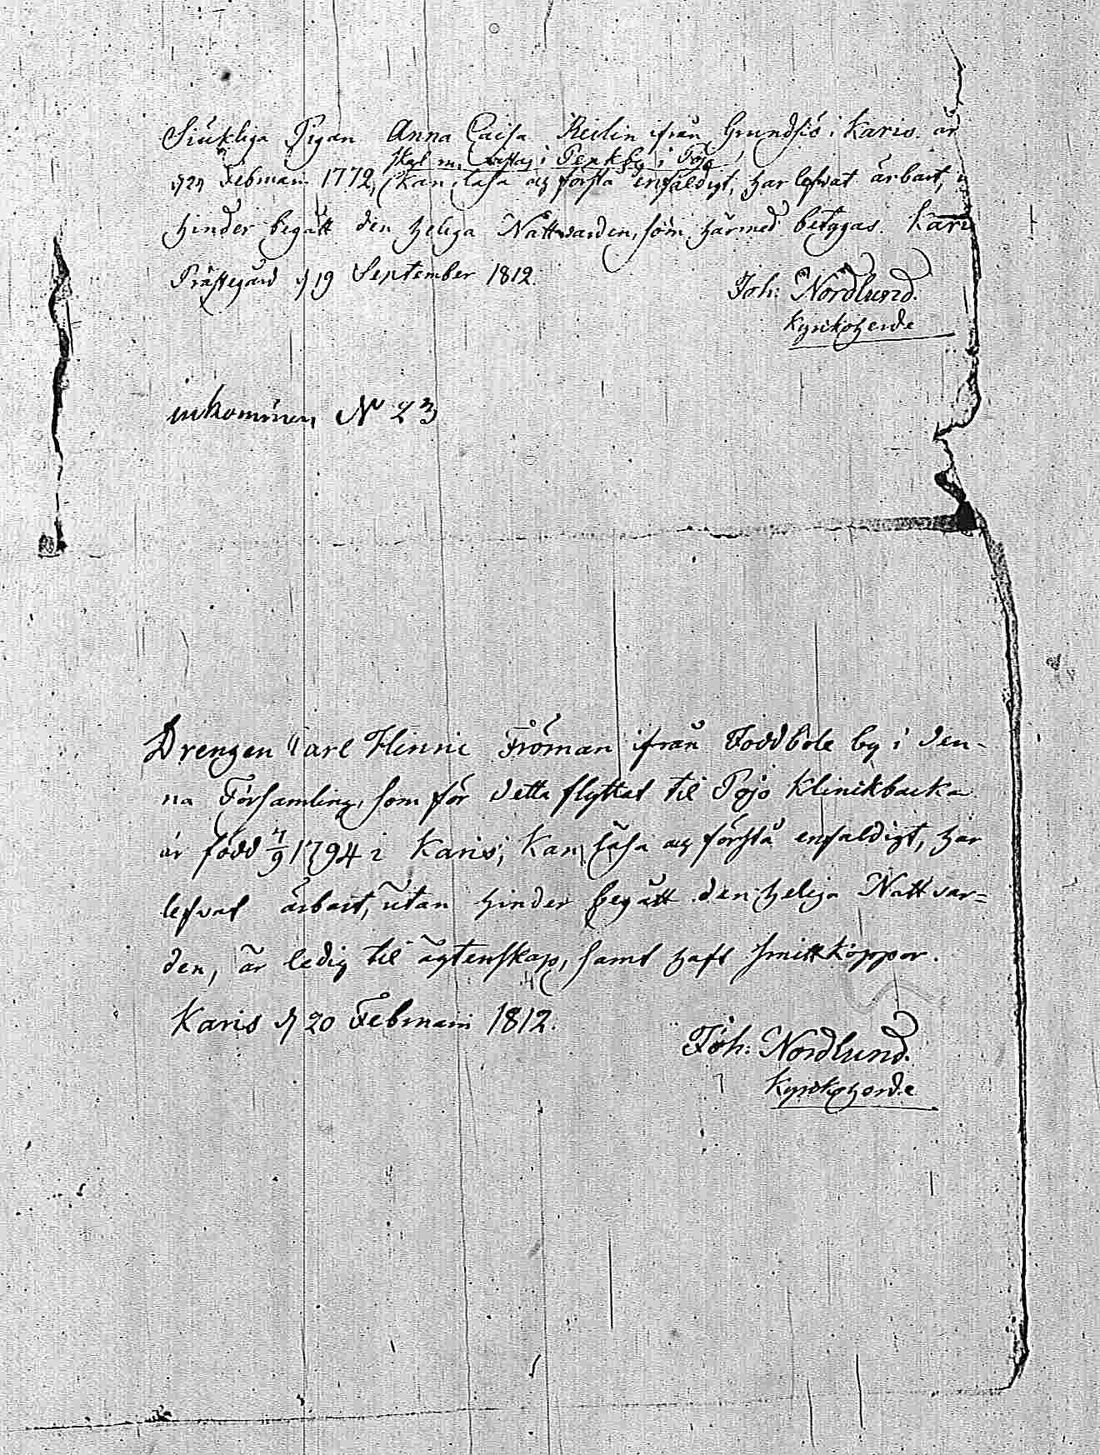 Siukliga Pigan Anna Caisa Reilin ifrån Grundsiö i Karis är
skal nu vistas i Penkby i Pojo
Februarii 1772, kan läsa och förstå enfaldigt, har lefvat ärbart,
hinder begått den helega Nattvarden, som härmed betygas. Karis
Prästegård d 19 September 1812.
Joh: Nordlund.
Kyrkoherde
inkommen N 23
Drengen Carl Hinric Fröman ifrån Joddböle by i den-
na Församling, som för detta flyttat til Pojo Klinikbacka
är född 4/9 1794 i Karis; kan läsa och förstå enfaldigt, har
lefvat ärbart, utan hinder begått den heliga Nattvar=
den, är ledig til ägtenskap, samt haft smittkoppor.
Karis d 20 Februarii 1812.
Joh: Nordlund.
Kyrkoherde